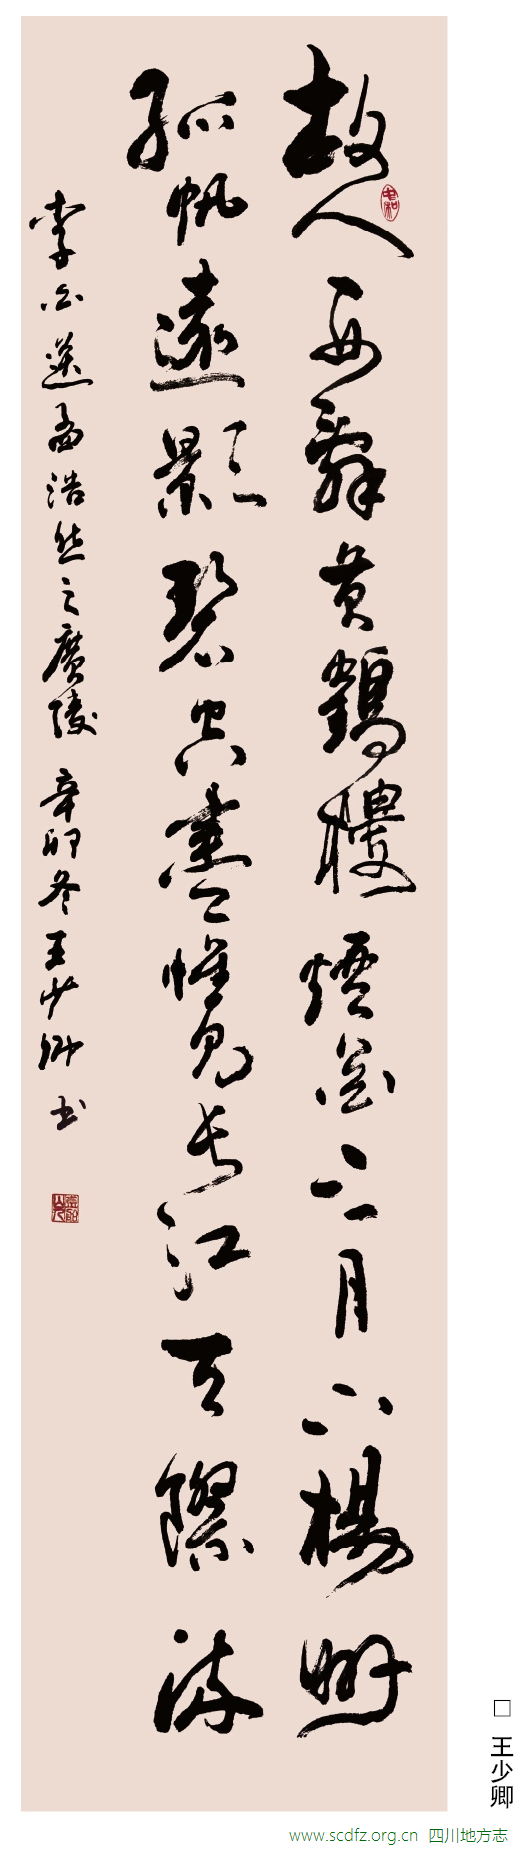 故人西辞黄鹤樓煙花三月下楊州
孤帆遠影碧空盡惟見長江天際流
李白送孟浩然之廣陵 辛卯冬王少卿书
□ 王少卿
www.scdfz.org.cn 四川地方志